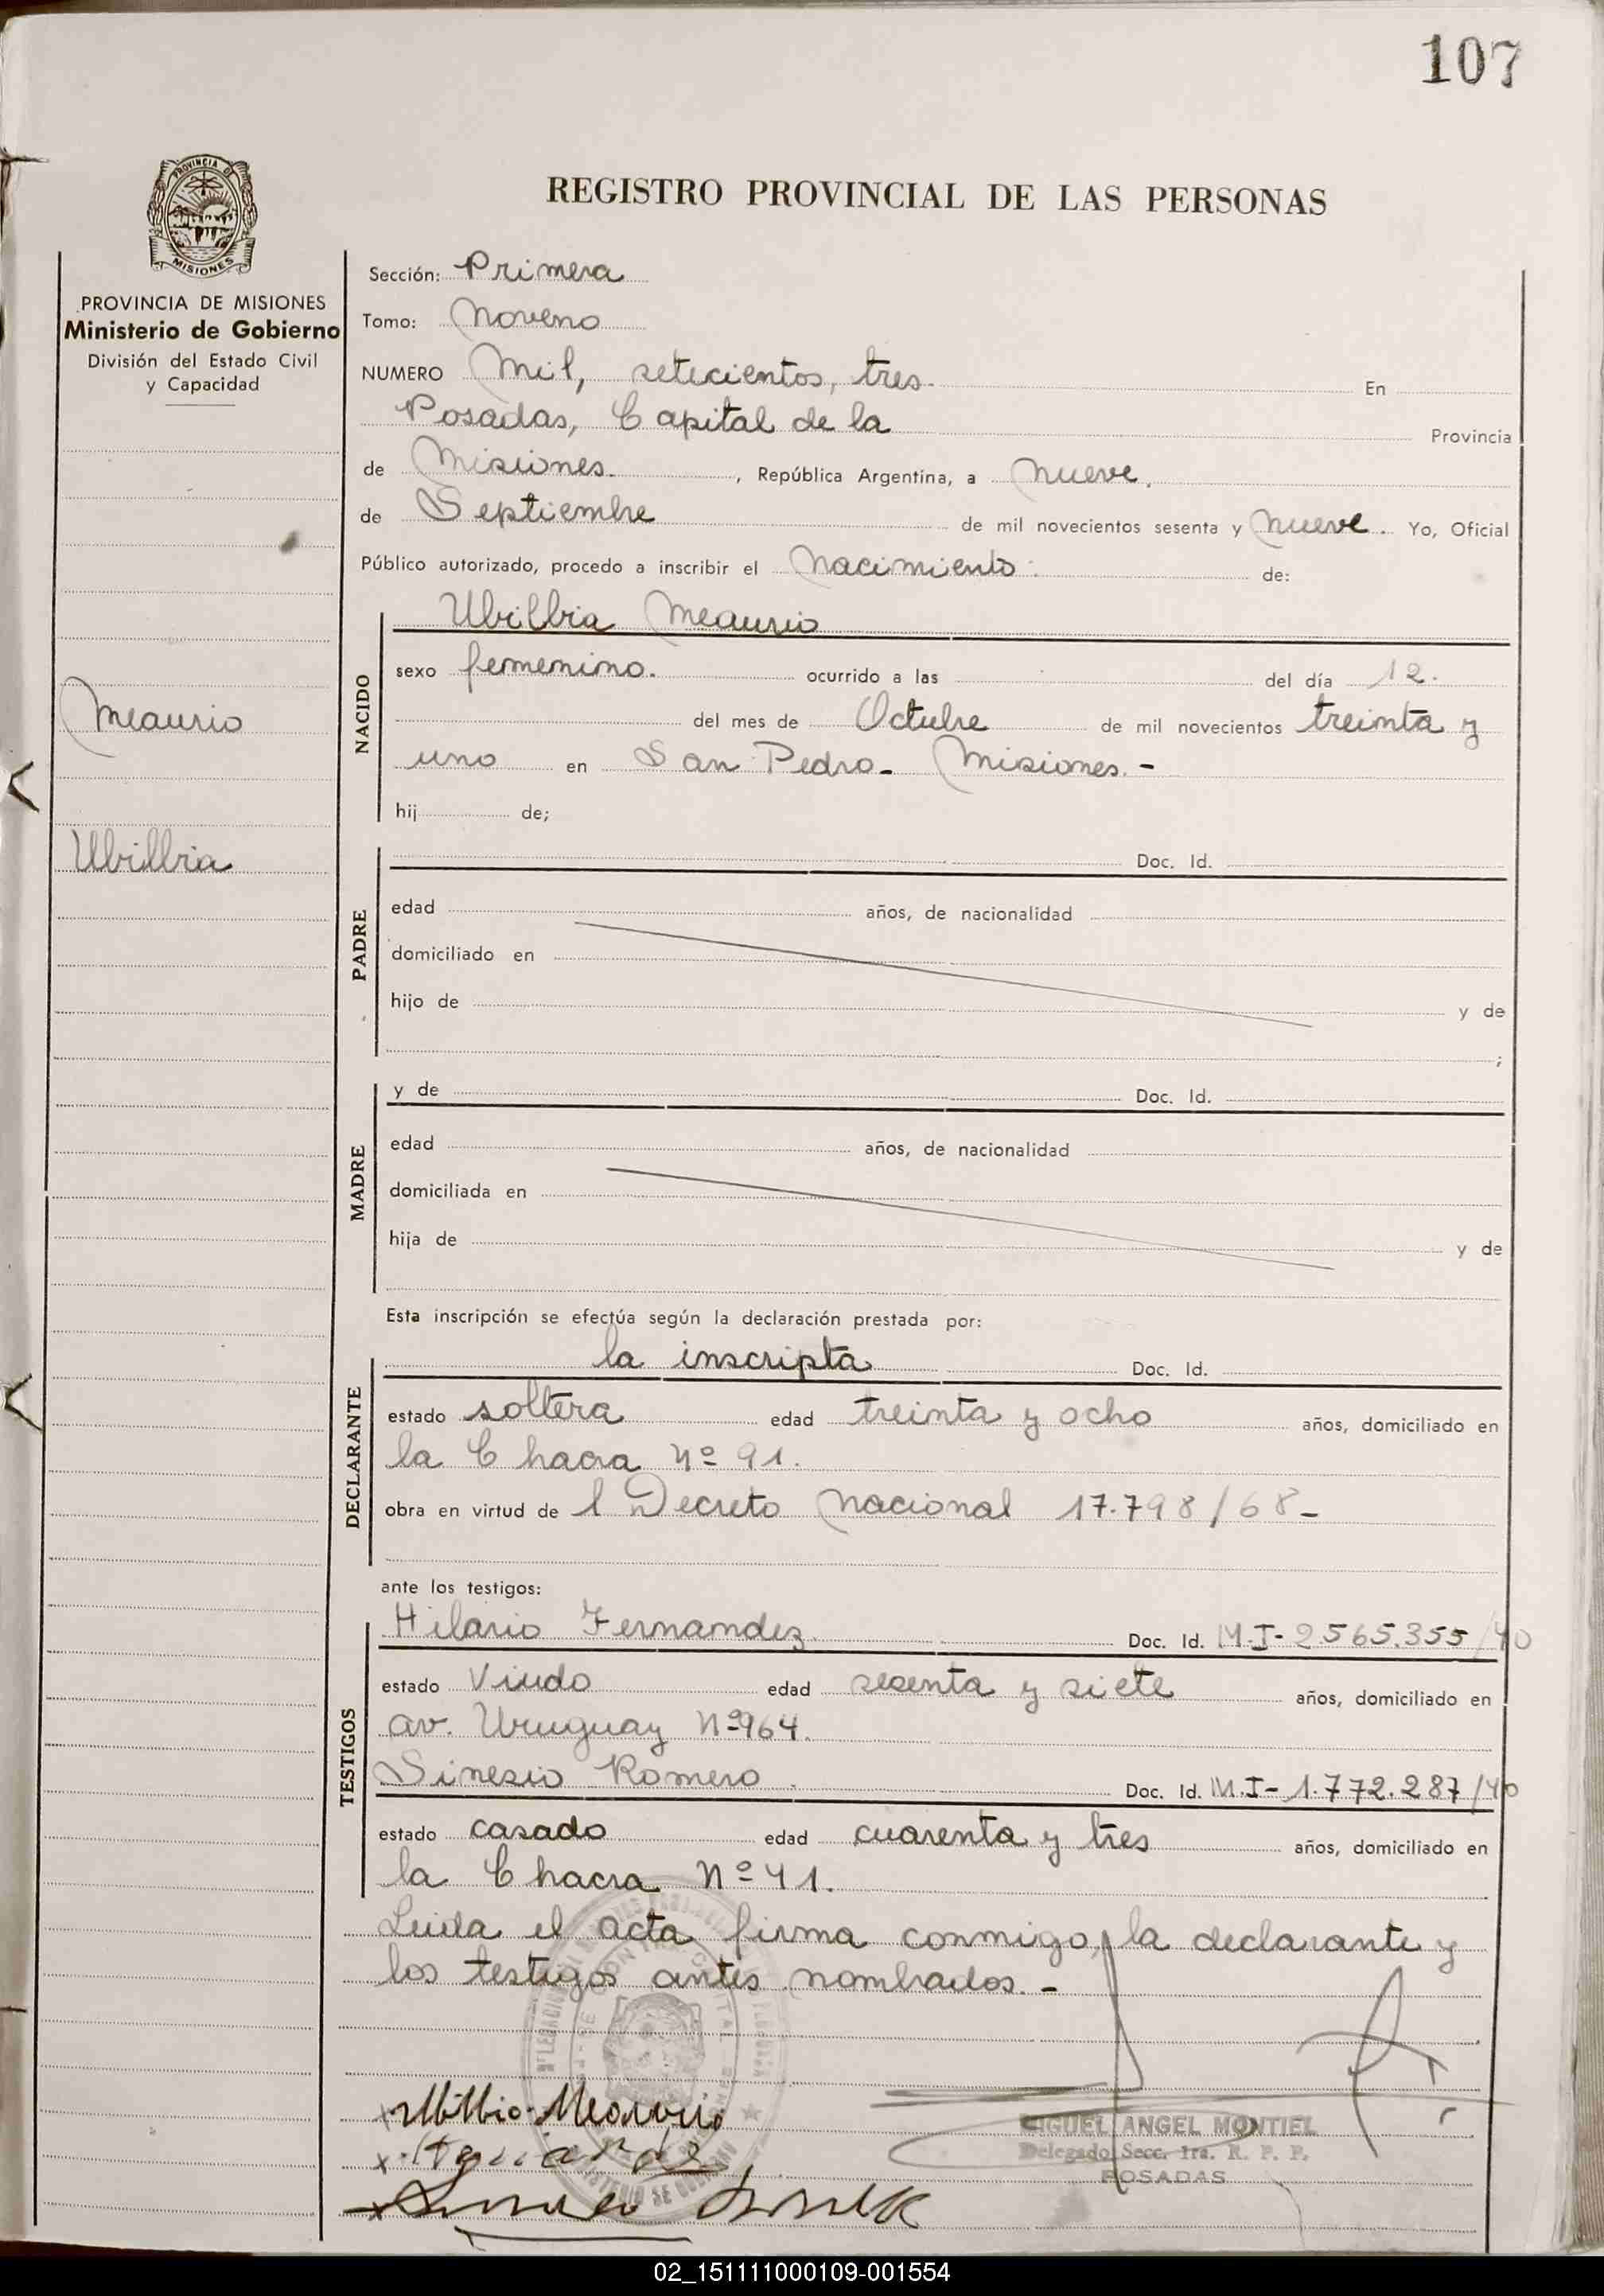 107
REGISTRO PROVINCIAL DE LAS PERSONAS
PROVINCIA DE MISIONES
Ministerio de Gobierno
División del Estado Civil
y Capacidad
Meaurio
Ubilbia
Sección: Primera
Tomo: Noveno
NUMERO Mil, setecientos, tres. En
Posadas, Capital de la Provincia
de Misiones. , República Argentina, a nueve.
de Septiembre de mil novecientos sesenta y nueve. Yo, Oficial
Público autorizado, procedo a inscribir el Nacimiento. de:
NACIDO
Ubilbia Meaurio
sexo femenino. ocurrido a las del día 12.
del mes de Octubre de mil novecientos treinta y
uno en San Pedro - Misiones. -
hij de;
PADRE
Doc. Id.
edad años, de nacionalidad
domiciliado en
hijo de y de
;
MADRE
y de Doc. Id.
edad años, de nacionalidad
domiciliada en
hija de y de
Esta inscripción se efectúa según la declaración prestada por:
DECLARANTE
la inscripta Doc. Id.
estado soltera edad treinta y ocho años, domiciliado en
la Chacra Nº 91.
obra en virtud de l Decreto Nacional 17.798/68 -
ante los testigos:
TESTIGOS
Hilario Fernandez Doc. Id. M.I- 2565.355/40
estado Viudo edad sesenta y siete años, domiciliado en
av. Uruguay Nº 964.
Sinesio Romero. Doc. Id. M.I- 1.772.287/40
estado casado edad cuarenta y tres años, domiciliado en
la Chacra Nº 41.
Leida el acta firma conmigo, la declarante y
los testigos antes nombrados. -
MIGUEL ANGEL MONTIEL
Delegado Secc. 1ra. R. P. P.
POSADAS
02_151111000109-001554